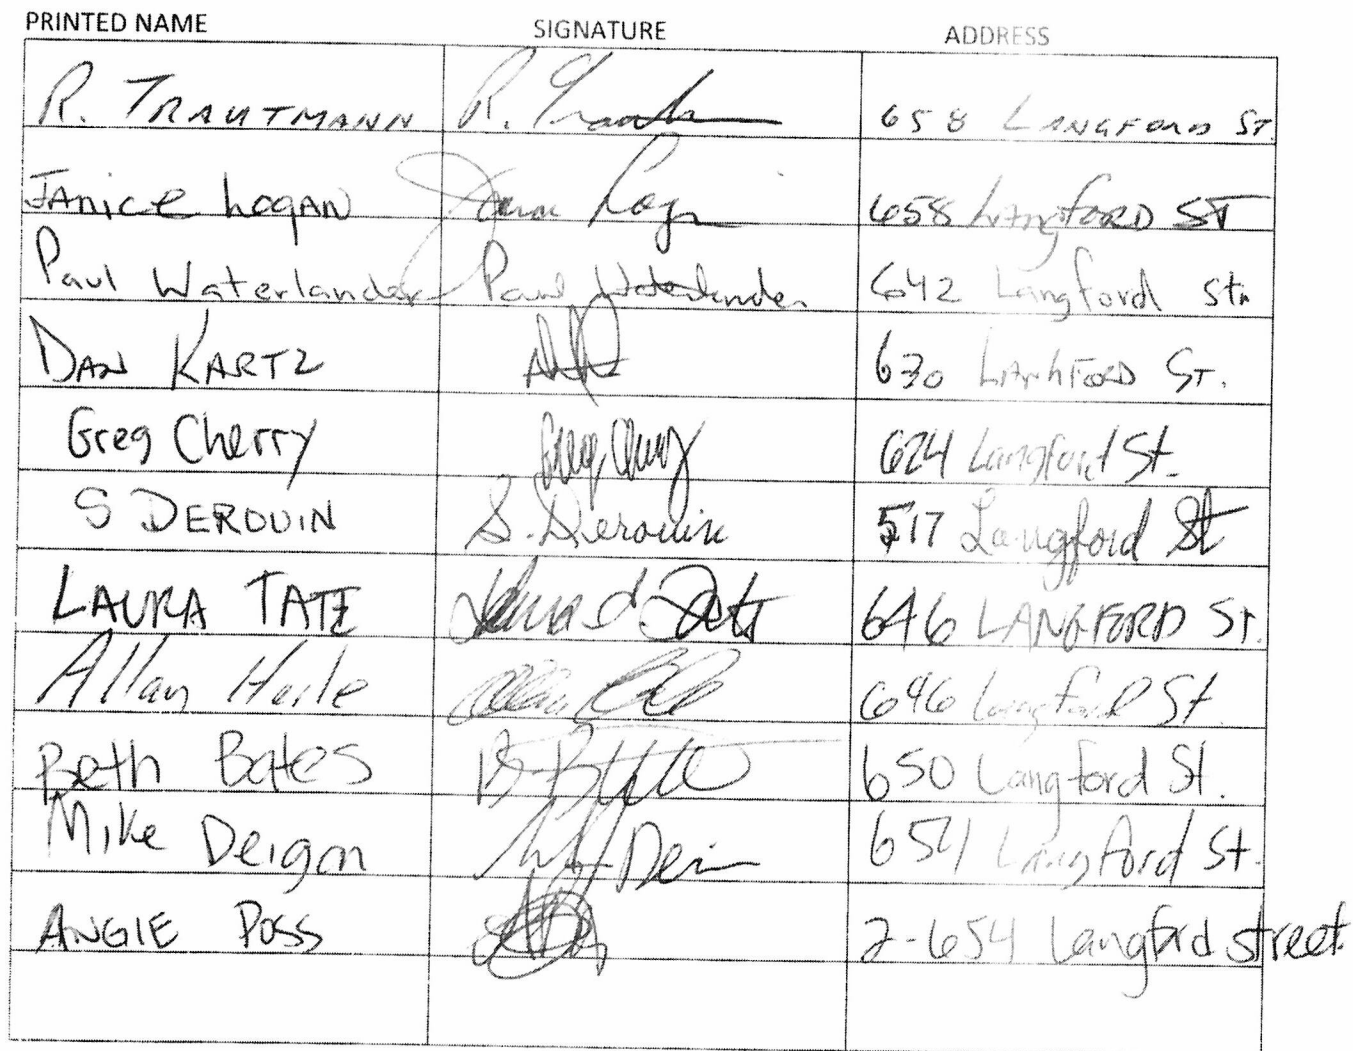 PRINTED NAME SIGNATURE ADDRESS
R. TRAUTMANN R. 658 LANGFORD ST.
JANICE LOGAN 658 LANGFORD ST
Paul Waterlander Paul Waterlander 642 Langford St.
DAN KARTZ 630 ST.
Greg Cherry Greg Cherry 624 Langford St.
S DEROUIN S. Derouin 517 Langford St
LAURA TATE 646 LANGFORD ST.
Allan 646 Langford St.
Beth Bates 650 Langford St.
Mike Deigan 654 Langford St.
ANGIE POSS 2-654 Langford street